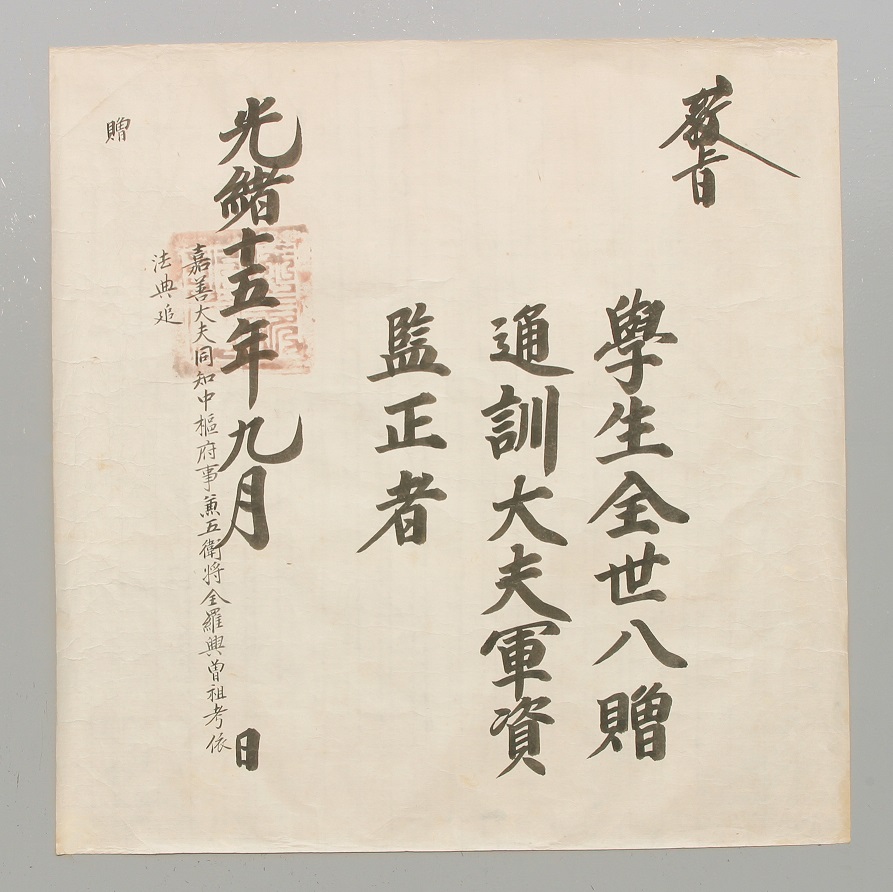 敎旨
學生全世八贈
通訓大夫軍資
監正者
光緖十五年九月 日
嘉善大夫同知中樞府事兼五衛將全羅興曾祖考依
法典追
贈